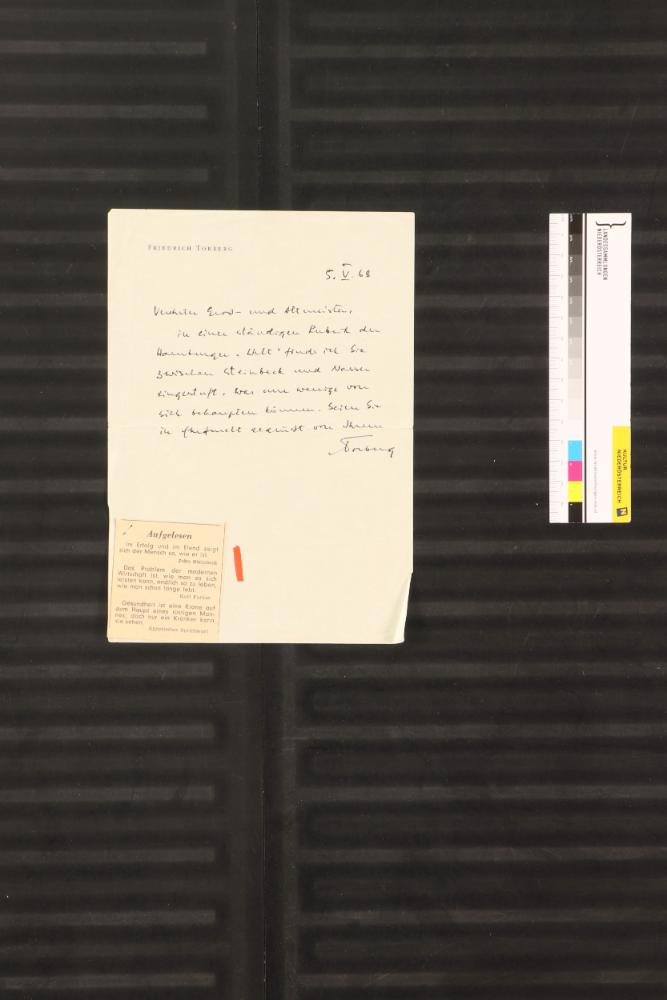 FRIEDRICH TORBERG
5. V. 68
Verehrter Gross- und Altmeister,
in einer ständigen Rubrik der
Hamburger „Welt" finde ich Sie
zwischen Steinbeck und Nasser
eingestuft, was nur wenige von
sich behaupten können. Seien Sie
in Ehrfurcht gegrüsst von Ihrem
Torberg
Aufgelesen
Im Erfolg und im Elend zeigt
sich der Mensch so, wie er ist.
John Steinbeck
Das Problem der modernen
Wirtschaft ist, wie man es sich
leisten kann, endlich so zu leben,
wie man schon lange lebt.
Karl Farkas
Gesundheit ist eine Krone auf
dem Haupt eines rüstigen Man-
nes; doch nur ein Kranker kann
sie sehen.
Sprichwort
LANDESSAMMLUNGEN
NIEDERÖSTERREICH
KULTUR
NIEDERÖSTERREICH